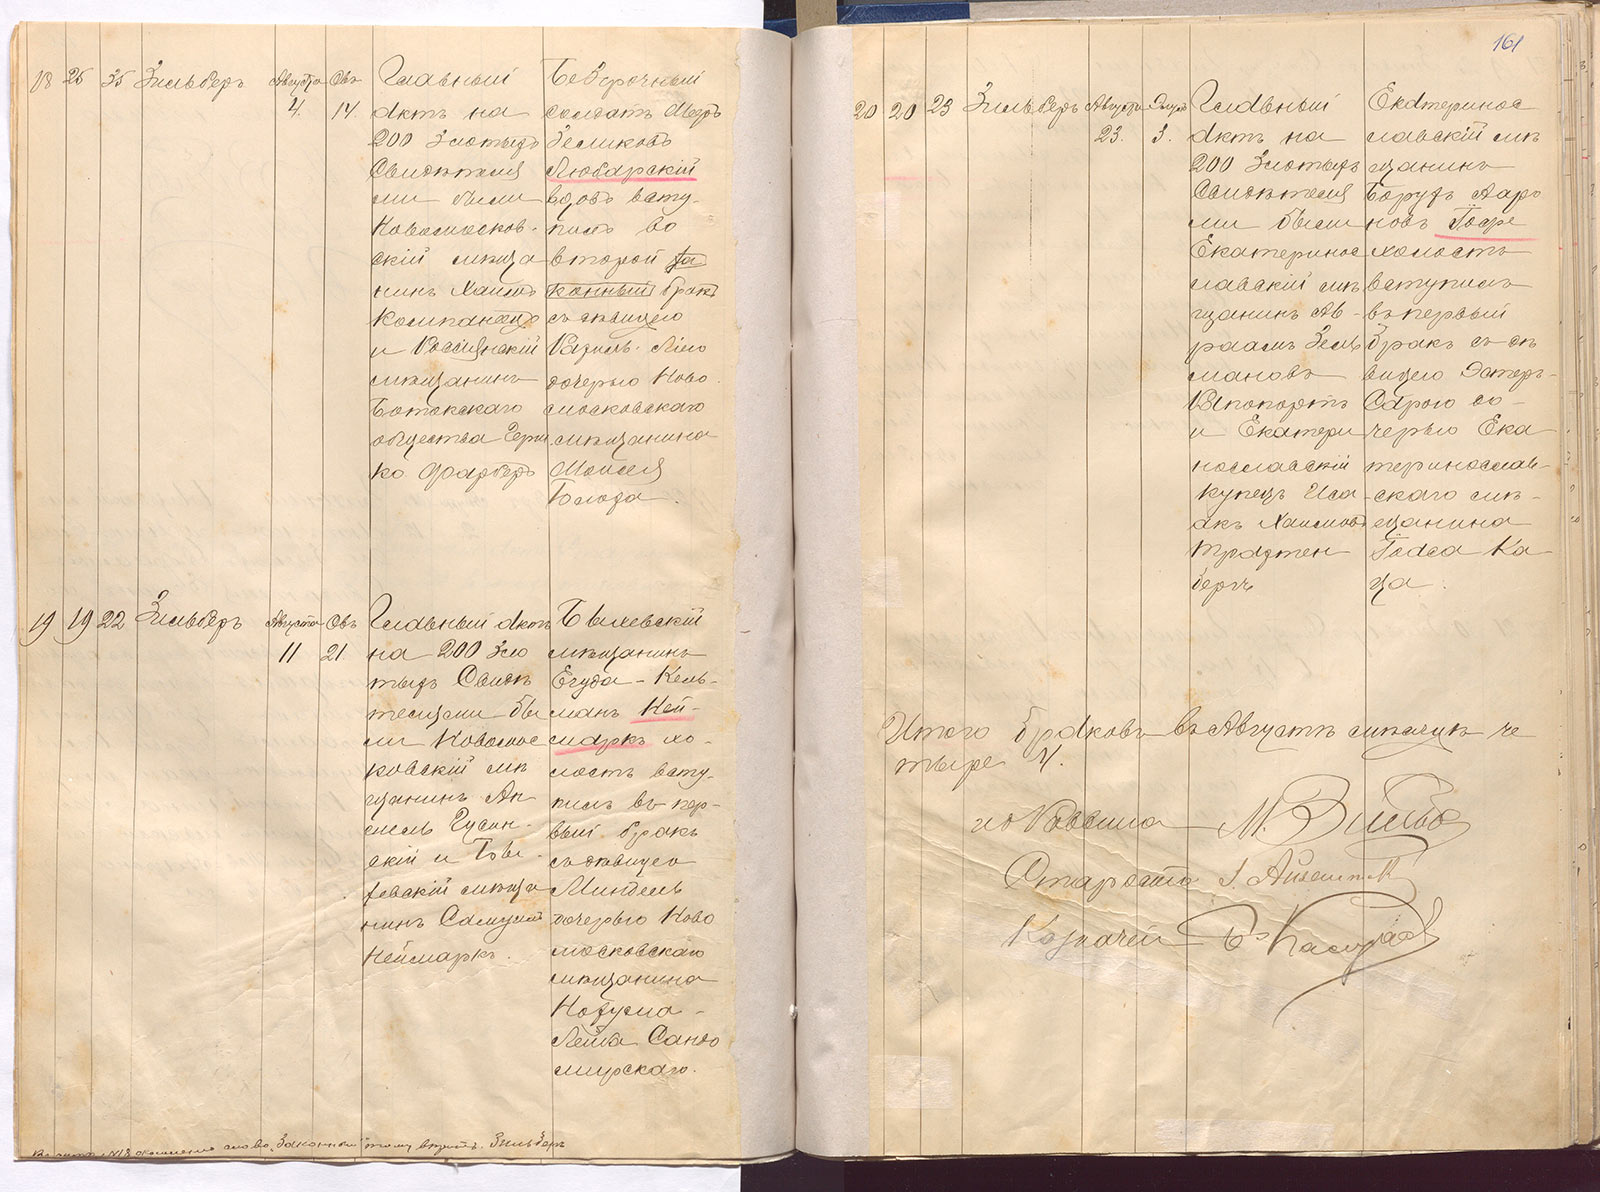 18 25 35 Зильберъ Августа 4. Овъ 14.
Главный
актъ на
200 злотыхъ
Свидѣтеля
ми были
Новомосков-
скій мѣща
нинъ Хаимъ
и Россіянскій
мѣщанинъ
общества Герш
ко Фарберъ
Безсрочный
солдатъ Мееръ
Зеликовъ
Любарскій
вдовъ всту-
пилъ во
второй за
конный бракъ
съ дѣвицею
дочерью Ново
московскаго
мѣщанина
Мошея
19 19 22 Зильберъ Августа 11 Овъ 21.
Главный актъ
на 200 зло
тыхъ Свидѣ
телями бы
ли Новомос
ковскій мѣ
щанинъ Ан
шель Гусин-
скій и
мѣща
нинъ Самуилъ
Неймаркъ.
мѣщанинъ
Егуда-Кель-
манъ Ней-
маркъ хо-
лостъ всту-
пилъ въ пер-
вый бракъ
съ дѣвицею
Миндель
дочерью Ново
московскаго
мѣщанина
Нохума-
Лейба Сандо
мирскаго.
слово „Законный" Зильберъ
161
20 20 23 Зильберъ Августа 23. Элулъ 3.
Главный
актъ на
200 злотыхъ
Свидѣтеля
ми были
Екатеринос
лавскій мѣ
щанинъ Ав-
раамъ Зель
мановъ
Рапопортъ
и Екатери
нославскій
купецъ Иса-
акъ Хаимовъ
Трахтен
бергъ
Екатеринос
лавскій мѣ
щанинъ
Борухъ Ааро
новъ Гофе
холостъ
вступилъ
въ первый
бракъ съ дѣ
вицею Эстеръ-
Сарою до-
черью Ека
теринослав-
скаго мѣ-
щанина
Ка
ца.
Итого браковъ въ Августѣ мѣсяцѣ че
тыре 4.
ио Раввина М.
Староста
Казначей